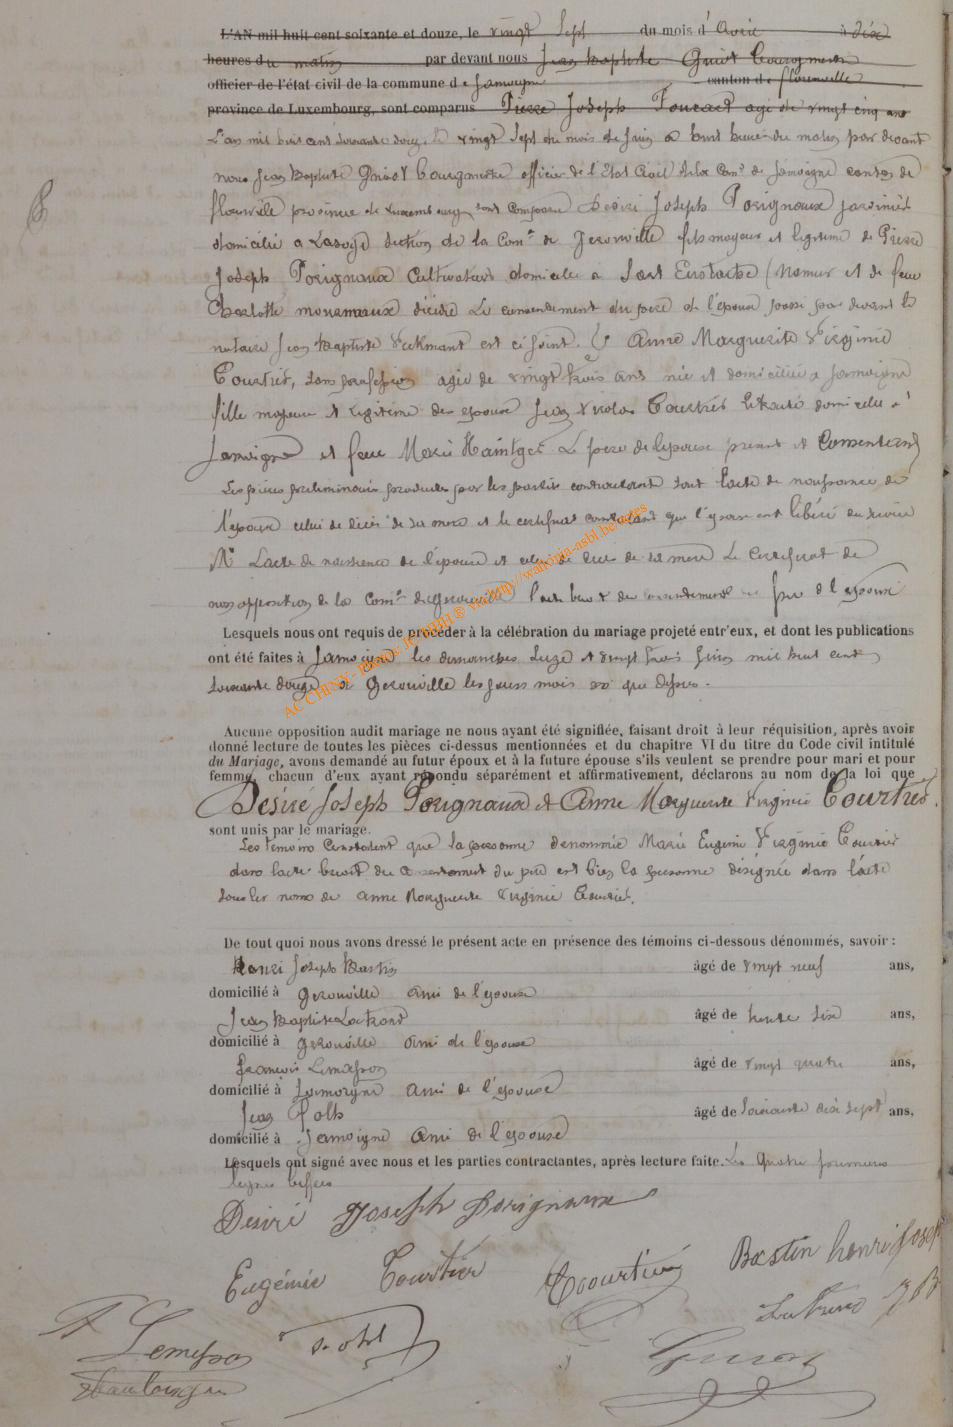 L'AN mil huit cent soixante et douze, le vingt Sept du mois d'Avril à dix
heures du matin par devant nous Jean Baptiste Guiot Bourgmestre
officier de l'état civil de la commune de Jamoigne canton de florenville
province de Luxembourg, sont comparus Pierre Joseph Foncart agé de vingt cinq ans
L'an mil huit cent soixante douze, le vingt Sept du mois de Juin a huit heures du matin par devant
nous Jean Baptiste Guiot bourgmestre officier de l'Etat Civil de la Comne de Jamoigne canton de
florenville province de Luxembourg sont comparu Désiré Joseph Porignaux jardinier
domicilié a section de la Comne de Gerouville fils majeur et legitime de Pierre
Joseph Porignaux Cultivateur domicilié à Sart Eustache (Namur et de feue
Charlotte décédée Le consentement du pere de l'époux passé par devant le
notaire Jean Baptiste est ci joint. Et Anne Marguerite Virginie
Courtier, sans profession agée de vingt trois ans née et domiciliée a Jamoigne
fille majeure et legitime des epoux Jean Nicolas Courtier domicilié à
Jamoigne et feue Marie Le pere de l'epouse present et Consentant
Les pièces preliminaires produites par les parties contractantes sont l'acte de naissance de
l'époux celui de décès de sa mere et le certificat constatant que l'époux est libéré du service
L'acte de naissance de l'épouse et celui de deces de sa mere Le Certificat de
non opposition de la Comne de Gerouville l'acte du consentement du pere de l'epoux
Lesquels nous ont requis de procéder à la célébration du mariage projeté entr'eux, et dont les publications
ont été faites à Jamoigne les dimanches Seize et vingt trois Juin mil huit cent
soixante douze et Gerouville les jours mois que dessus.
Aucune opposition audit mariage ne nous ayant été signifiée, faisant droit à leur réquisition, après avoir
donné lecture de toutes les pièces ci-dessus mentionnées et du chapitre VI du titre du Code civil intitulé
du Mariage, avons demandé au futur époux et à la future épouse s'ils veulent se prendre pour mari et pour
femme, chacun d'eux ayant répondu séparément et affirmativement, déclarons au nom de la loi que
Désiré Joseph Porignaux et Anne Marguerite Virginie Courtier.
sont unis par le mariage.
Les témoins Constatent que la personne dénommée Marie Eugenie Virginie Courtier
dans l'acte du consentement du pere est bien la personne désignée dans l'acte
sous les noms de Anne Marguerite Virginie Courtier.
De tout quoi nous avons dressé le présent acte en présence des témoins ci-dessous dénommés, savoir :
Henri Joseph Bastin âgé de vingt neuf ans,
domicilié à Gerouville ami de l'épouse
Jean Baptiste âgé de trente six ans,
domicilié à Gerouville ami de l'épouse
francois Lemasson âgé de vingt quatre ans,
domicilié à Jamoigne ami de l'épouse
Jean âgé de soixante dix sept ans,
domicilié à Jamoigne ami de l'épouse
Lesquels ont signé avec nous et les parties contractantes, après lecture faite. Les quatre premieres
lignes biffées
Désiré Joseph Porignaux
Eugénie Courtier Courtier Bastin henri Joseph
Lemasson
Guiot